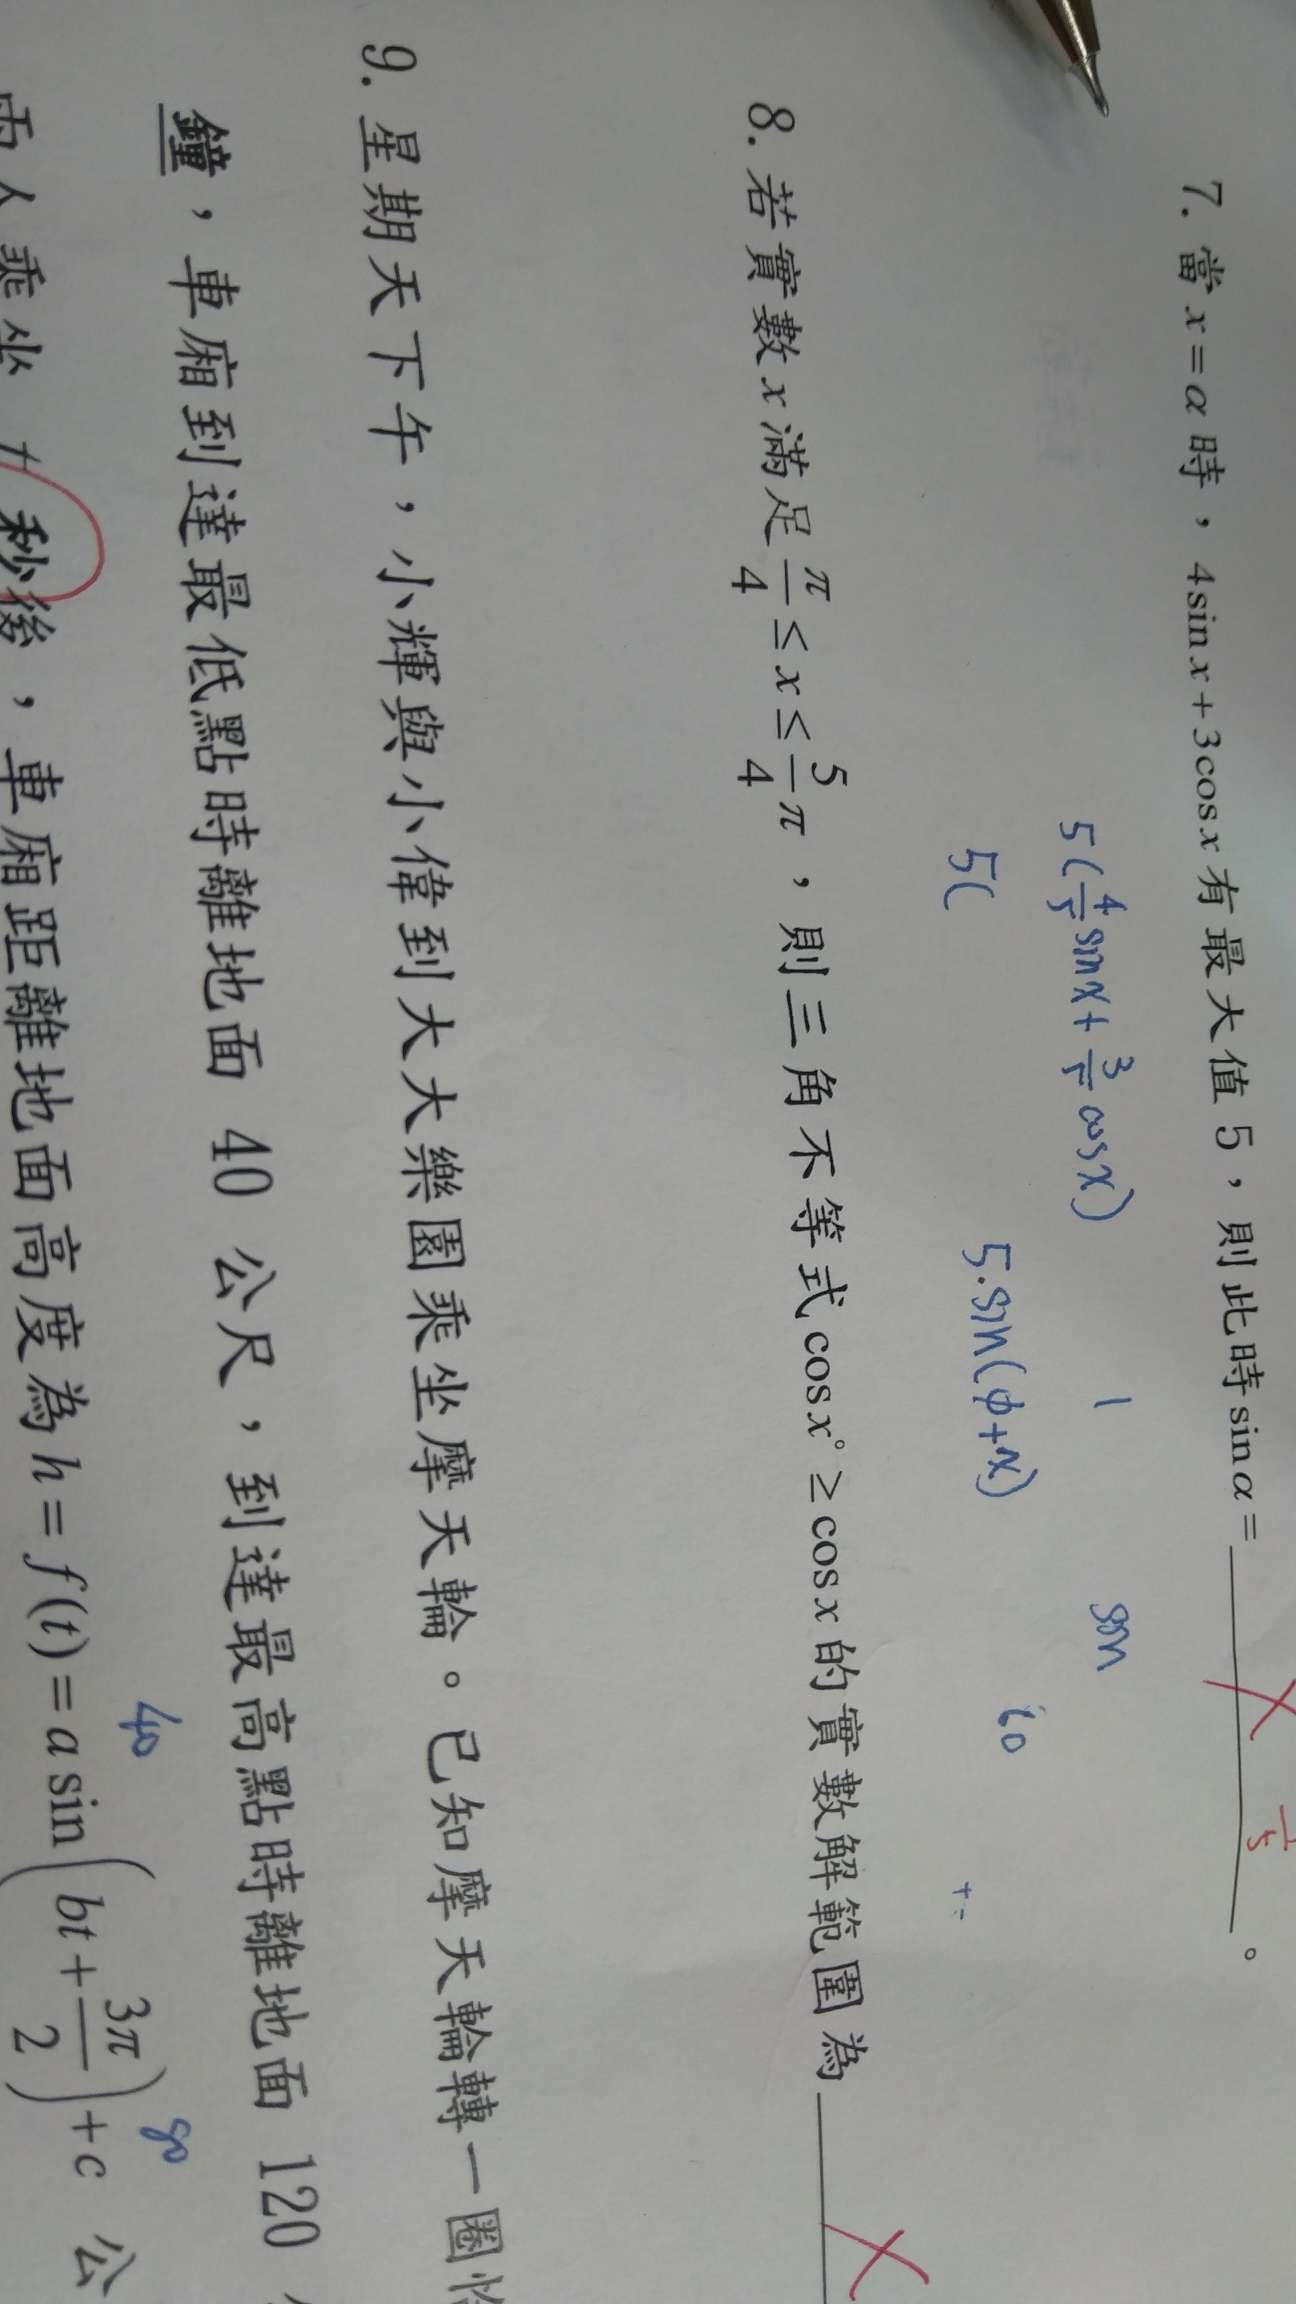 7. 當 x=α 時，4sin x+3cos x 有最大值 5，則此時 sin α=______。
5(4/5 sinx+3/5 cosx) 1 sin
5( 5·sin(φ+x) 60
8. 若實數 x 滿足 π/4 ≤ x ≤ 5/4 π，則三角不等式 cos x° ≥ cos x 的實數解範圍為
9. 星期天下午，小輝與小偉到大大樂園乘坐摩天輪。已知摩天輪轉一圈恰
鐘，車廂到達最低點時離地面 40 公尺，到達最高點時離地面 120
40 80
兩人乘坐 t 秒後，車廂距離地面高度為 h=f(t)=a sin(bt+3π/2)+c 公